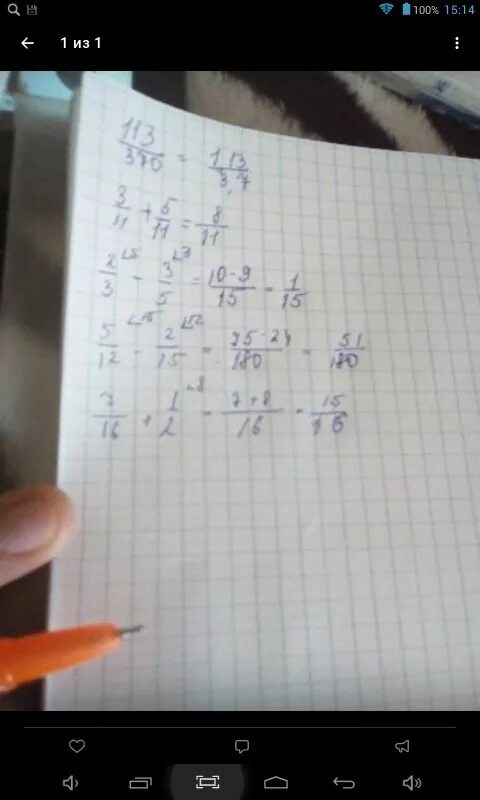 100% 15:14
1 из 1
113/370 = 1,13/3,7
3/11 + 5/11 = 8/11
2/3 - 3/5 = 10-9/15 = 1/15
5/12 - 2/15 = 75-24/180 = 51/180
7/16 + 1/2 = 7+8/16 = 15/16